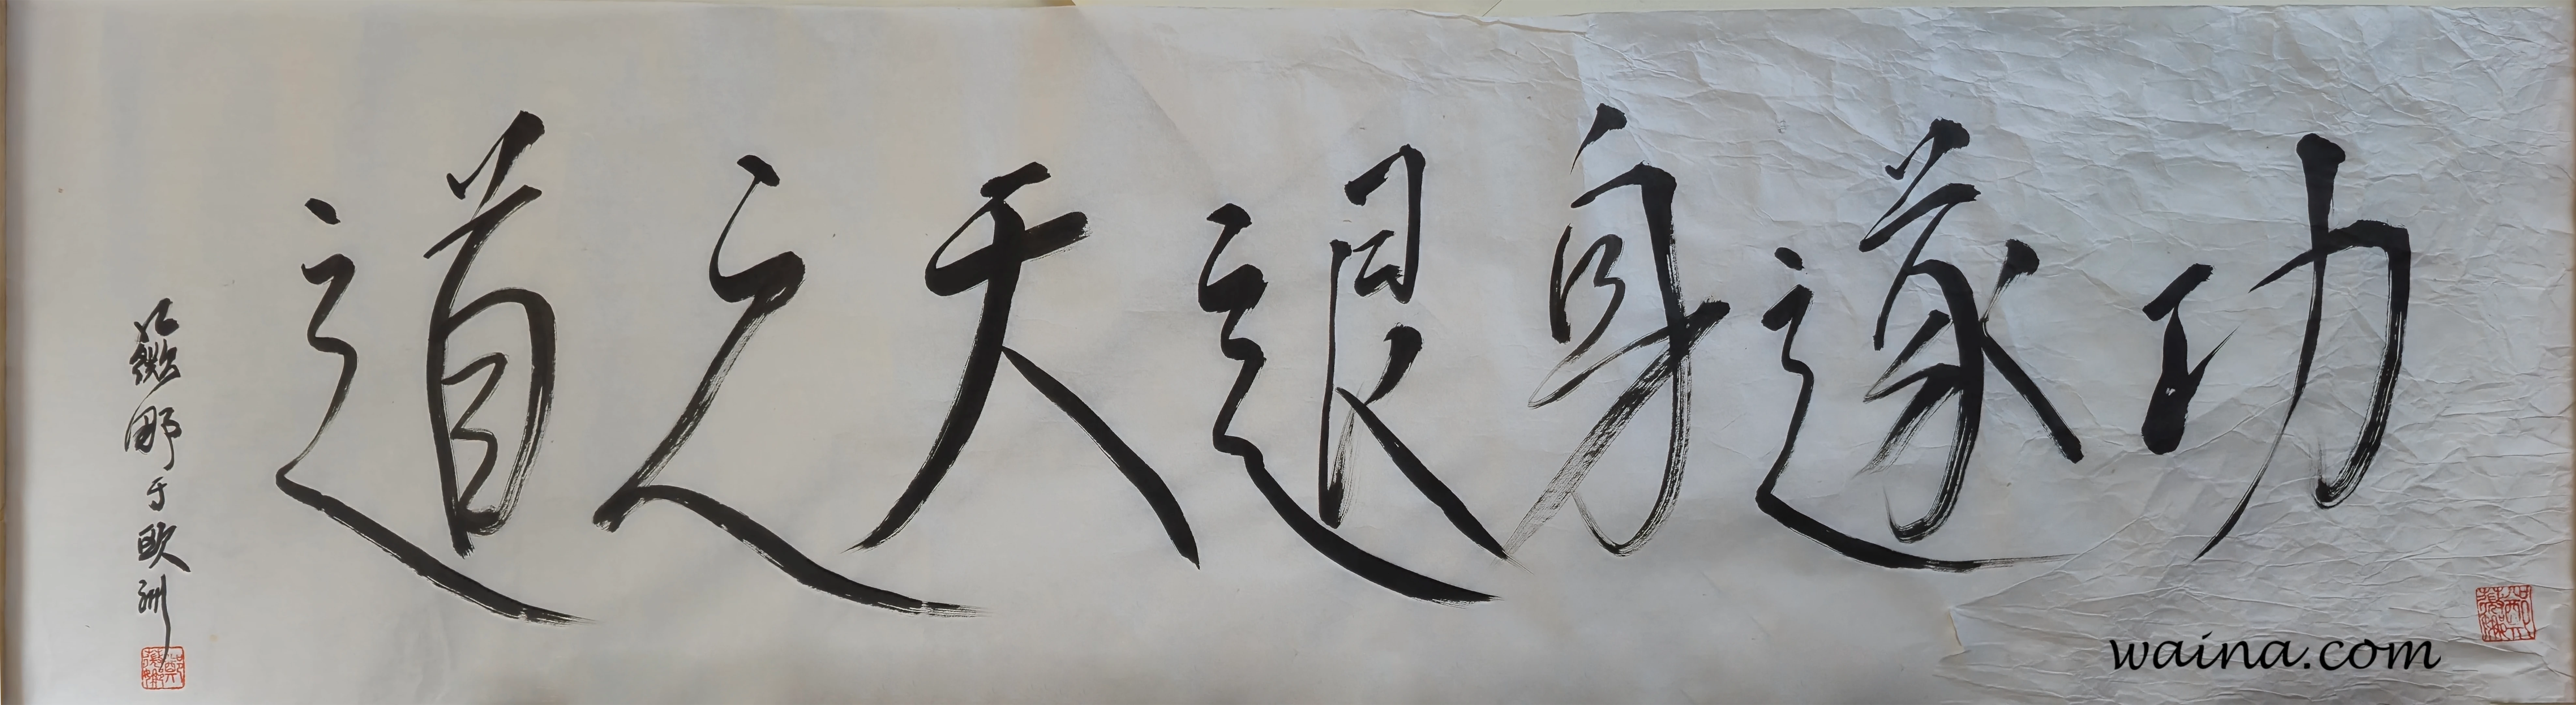 功遂身退天之道
于欧洲
waina.com